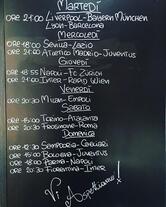 Martedì
ore 21:00 Liverpool-Bayern München
Lyon-Barcelona
Mercoledì
ore 18:00 Genoa-Lazio
ore 21:00 Atletico Madrid-Juventus
Giovedì
ore 18:55 Napoli-FC Zürich
ore 21:00 Inter-Rapid Wien
Venerdì
ore 20:30 Milan-Empoli
Sabato
ore 15:00 Torino-Atalanta
ore 20:30 Frosinone-Roma
Domenica
ore 12:30 Sampdoria-Cagliari
ore 15:00 Bologna-Juventus
ore 18:00 Parma-Napoli
ore 20:30 Fiorentina-Inter
Vi Aspettiamo!